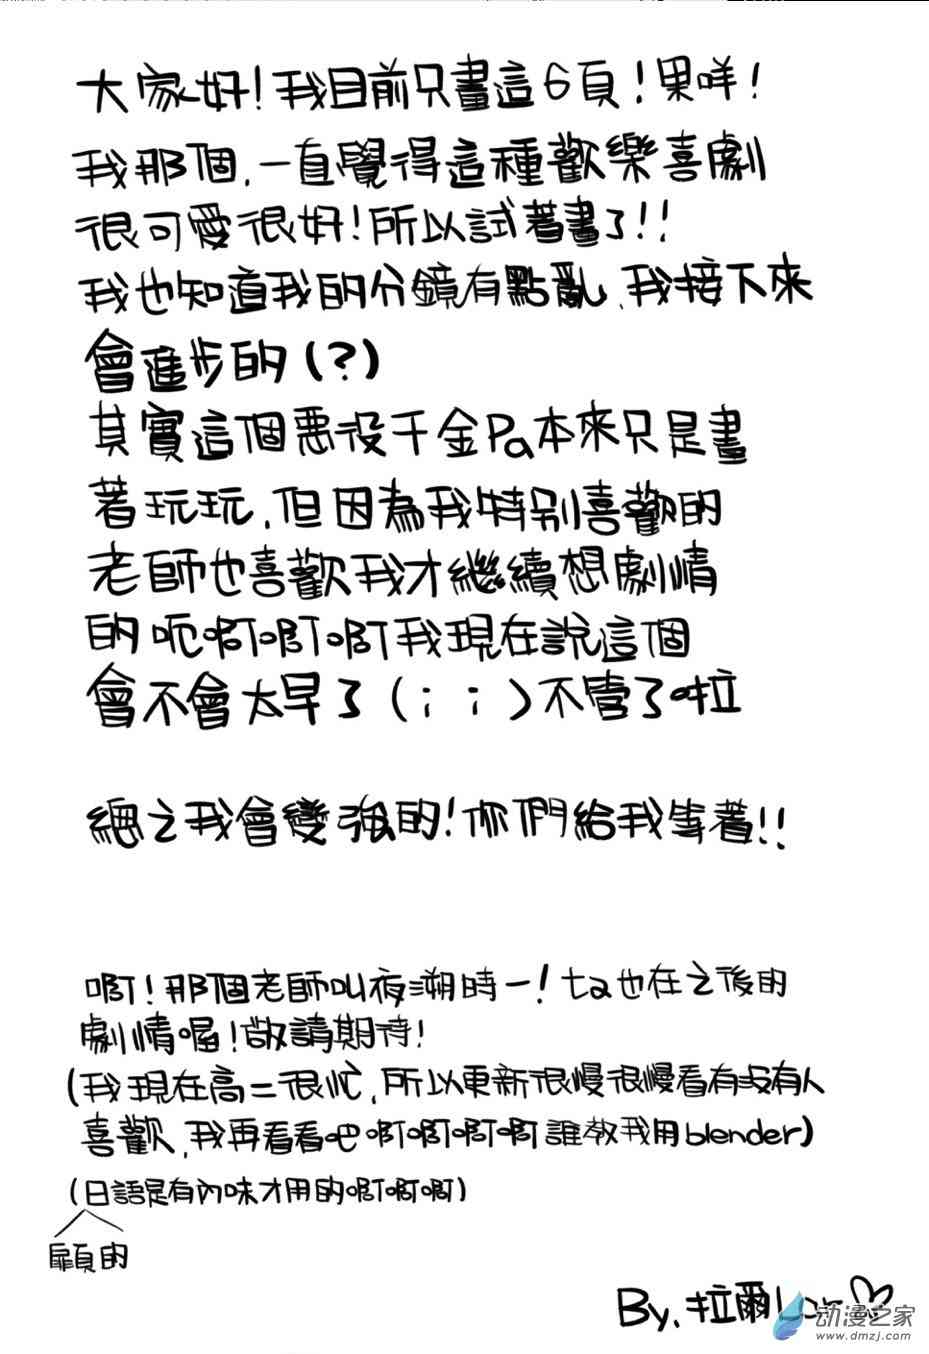 大家好!我目前只畫這6頁!果咩!
我那個,一直覺得這種歡樂喜劇
很可愛很好!所以試著畫了!!
我也知道我的分鏡有點亂,我接下來
會進步的(?)
其實這個惡役千金Pa本來只是畫
著玩玩,但因為我特別喜歡的
老師也喜歡我才繼續想劇情
的呃啊啊啊我現在說這個
會不會太早了(; ;)不管了啦
總之我會變強的!你們給我等著!!
啊!那個老師叫夜溯時一!ta也在之後的
劇情喔!敬請期待!
(我現在高二很忙,所以更新很慢很慢看有沒有人
喜歡,我再看看吧 啊啊啊啊誰教我用blender)
(日語是有內味才用的啊啊啊)
顧的
By.拉爾
动漫之家
www.dmzj.com